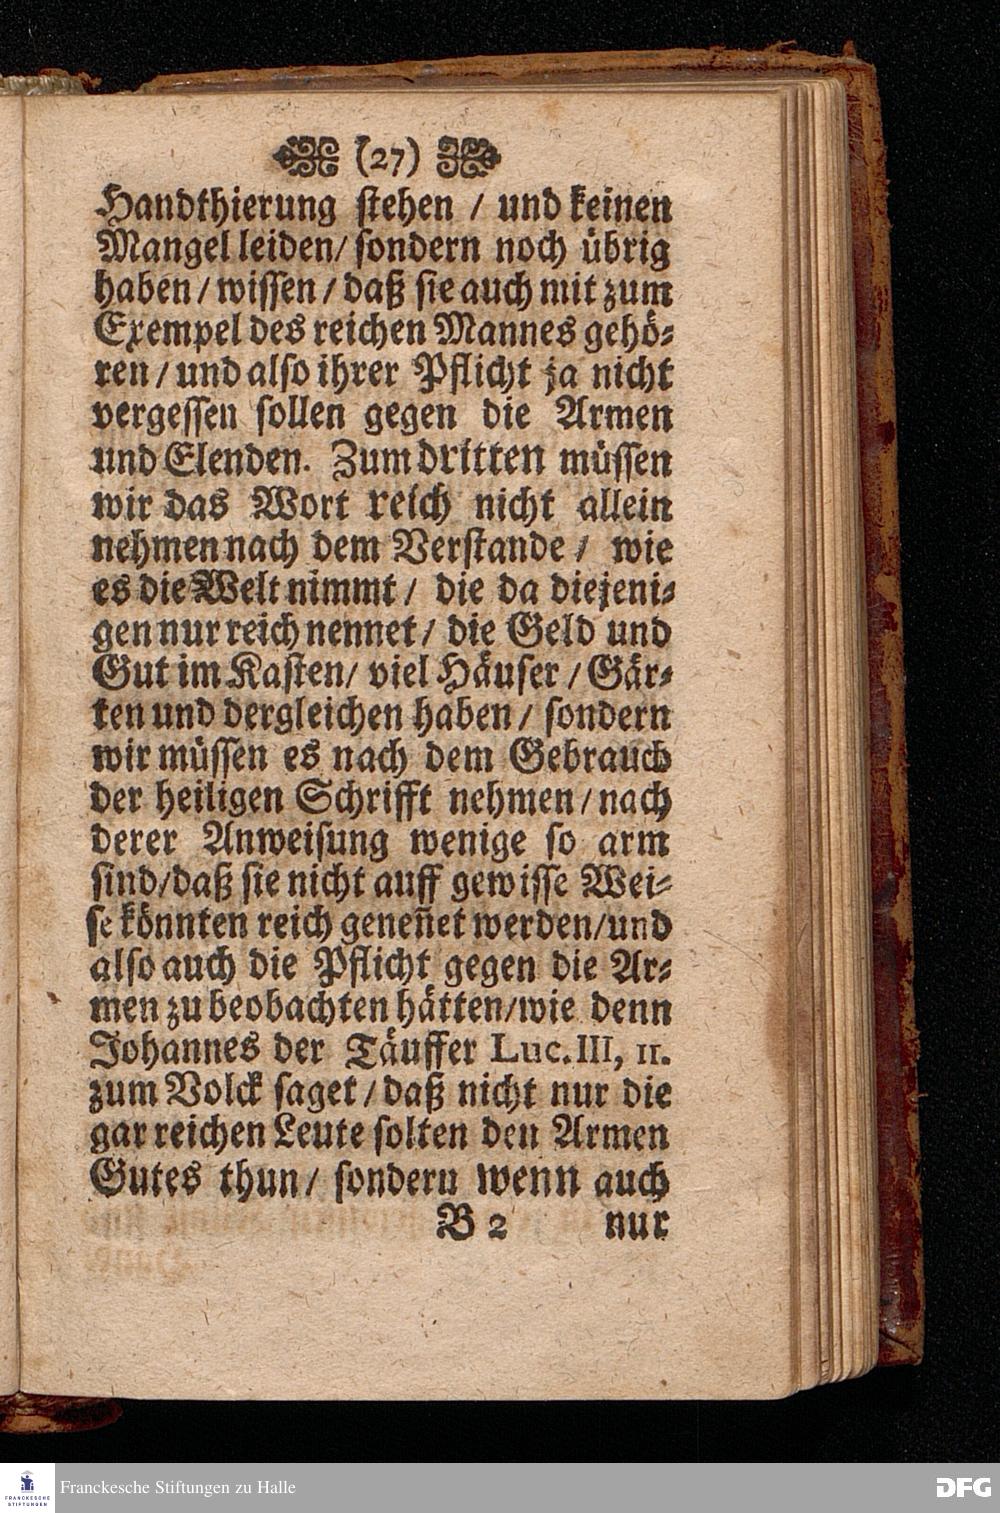 (27)
Handthierung stehen / und keinen
Mangel leiden/ sondern noch übrig
haben / wissen / daß sie auch mit zum
Exempel des reichen Mannes gehö-
ren / und also ihrer Pflicht ja nicht
vergessen sollen gegen die Armen
und Elenden. Zum dritten müssen
wir das Wort reich nicht allein
nehmen nach dem Verstande / wie
es die Welt nimmt / die da diejeni-
gen nur reich nennet / die Geld und
Gut im Kasten/ viel Häuser / Gär-
ten und dergleichen haben / sondern
wir müssen es nach dem Gebrauch
der heiligen Schrifft nehmen / nach
derer Anweisung wenige so arm
sind/daß sie nicht auff gewisse Wei-
se könnten reich geneñet werden/und
also auch die Pflicht gegen die Ar-
men zu beobachten hätten/wie denn
Johannes der Täuffer Luc. III, 11.
zum Volck saget / daß nicht nur die
gar reichen Leute solten den Armen
Gutes thun / sondern wenn auch
B 2 nur
FRANCKESCHE STIFTUNGEN
Franckesche Stiftungen zu Halle
DFG